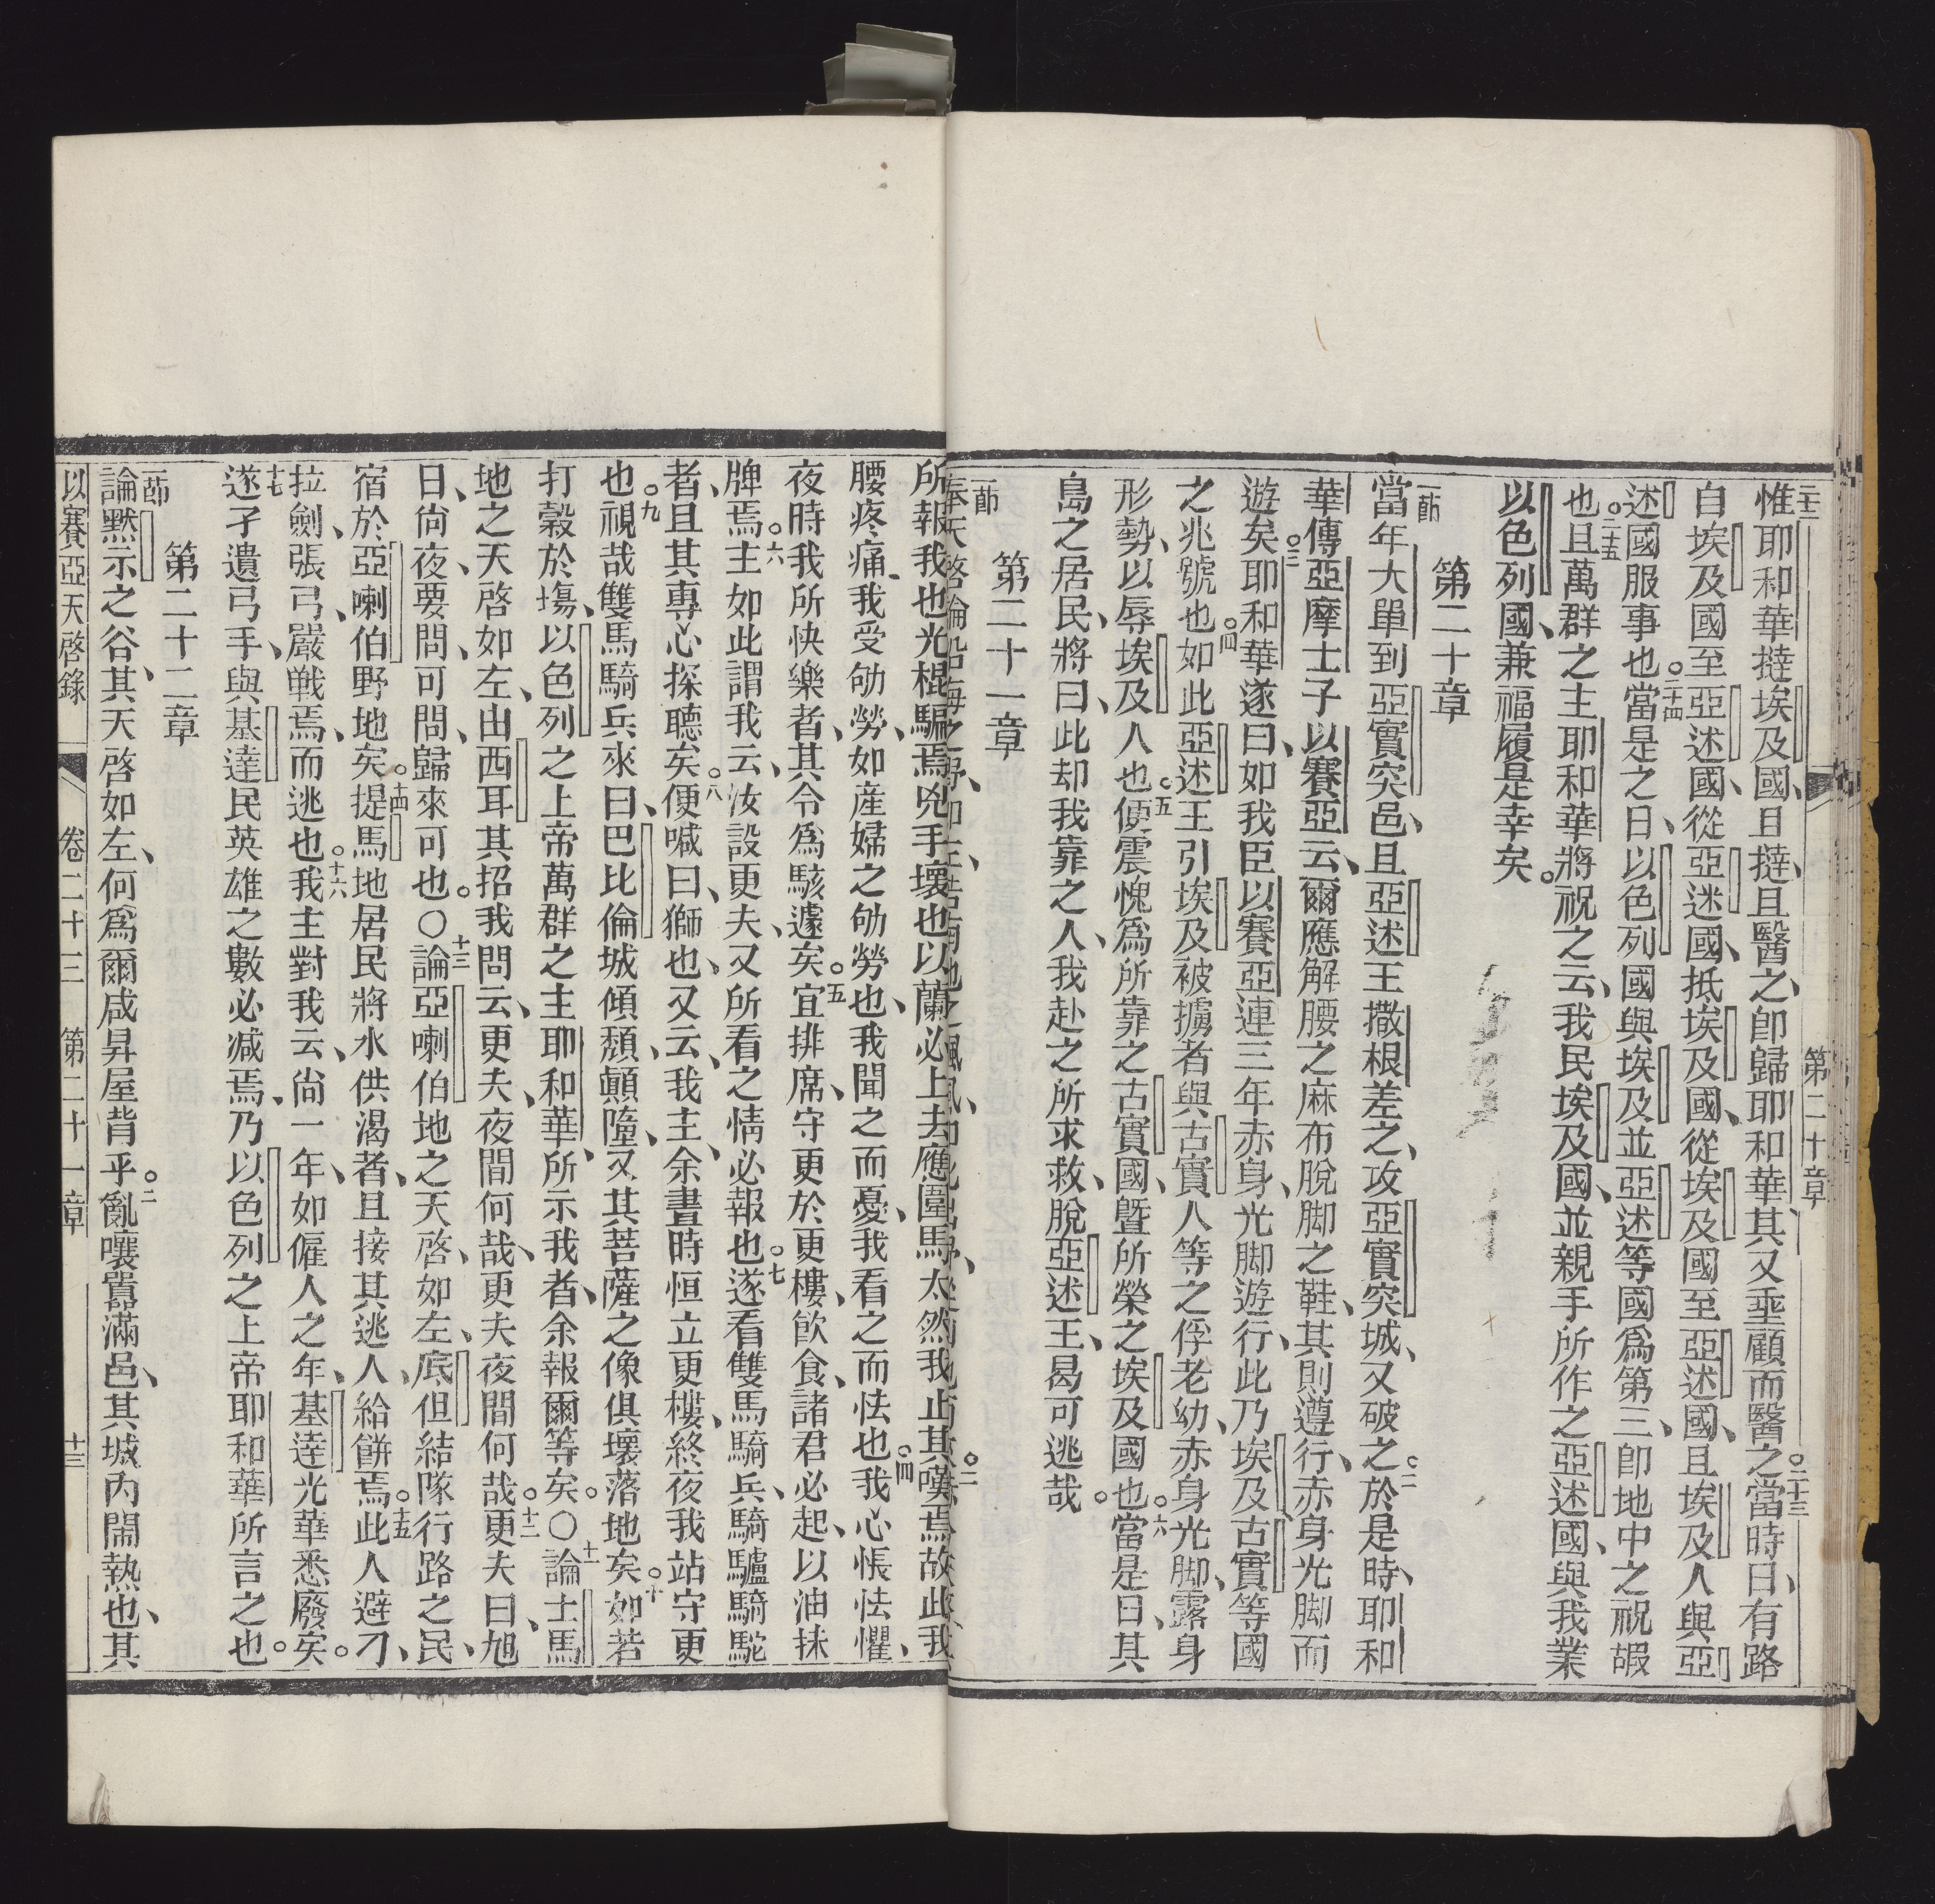 第二十章
二十二惟耶和華撻埃及國、且撻、且醫之、卽歸耶和華、其又垂顧而醫之。二十三當時日、有路
自埃及國至亞述國、從亞述國、抵埃及國、從埃及國至亞述國、且埃及人與亞
述國服事也。二十四當是之日、以色列國與埃及並亞述等國爲第三、卽地中之祝嘏
也。二十五且萬群之主耶和華將祝之云、我民埃及國、並親手所作之亞述國、與我業
以色列國、兼福履是幸矣。
第二十章
一節當年大單到亞實突邑、且亞述王撒根差之、攻亞實突城、又破之。二於是時、耶和
華傳亞摩士子以賽亞云、爾應解腰之麻布脫脚之鞋、其則遵行、赤身光脚而
遊矣。三耶和華遂曰、如我臣以賽亞連三年赤身、光脚遊行、此乃埃及古實等國
之兆號也。四如此亞述王引埃及被擄者與古實人等之俘老幼、赤身光脚、露身
形勢、以辱埃及人也。五便震愧爲所靠之古實國、曁所榮之埃及國也。六當是日、其
島之居民、將曰、此却我靠之人、我赴之所求救、脫亞述王、曷可逃哉。
第二十一章
所報我也光棍騙焉兇手壞也以蘭必上去應圍馬太然我止其嘆焉。故此我
腰疼痛、我受劬勞、如産婦之劬勞也、我聞之而憂、我看之而怯也。四我心悵怯懼、
夜時我所快樂者、其令爲駭遽矣。五宜排席、守更於更樓、飮食、諸君必起、以油抹
牌焉。六主如此謂我云、汝設更夫、又所看之情必報也。七遂看雙馬騎兵、騎驢騎駝
者、且其專心探聽矣。八便喊曰、獅也、又云、我主、余晝時恒立更樓、終夜我站守更
也。九視哉雙馬騎兵來曰、巴比倫城傾頽、顚墮、又其菩薩之像俱壞落地矣。十如若
打穀於塲、以色列之上帝萬群之主耶和華、所示我者、余報爾等矣。〇十一論士馬
地之天啓如左、由西耳其招我問云、更夫、夜間何哉、更夫夜間何哉。十二更夫曰、旭
日、尙夜、要問、可問、歸來可也。〇十三論亞喇伯地之天啓、如左、底但結隊行路之民、
宿於亞喇伯野地矣。十四提馬地居民將水供渴者、且接其逃人、給餠焉。十五此人避刀、
拉劍、張弓、嚴戰焉、而逃也。十六我主對我云、尙一年、如僱人之年、基達光華悉廢矣。
十七遂孑遺弓手、與基達民英雄之數必减焉、乃以色列之上帝耶和華所言之也。
第二十二章
一節論黙示之谷、其天啓如左、何爲爾咸昇屋背乎。二亂嚷囂滿邑、其城內閙熱也、其
以賽亞天啓錄 卷二十三 第二十一章 十三